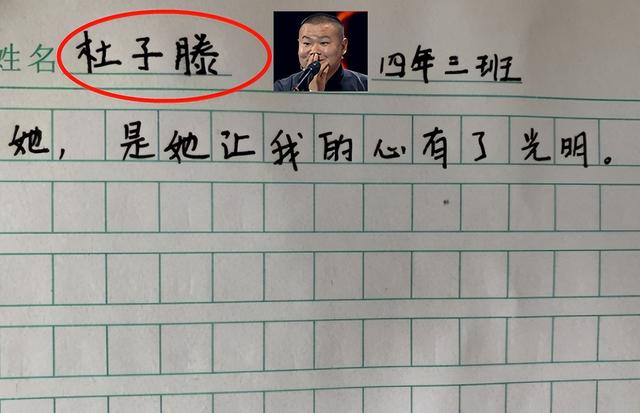 姓名 杜子滕 四年三班
她，是她让我的心有了光明。